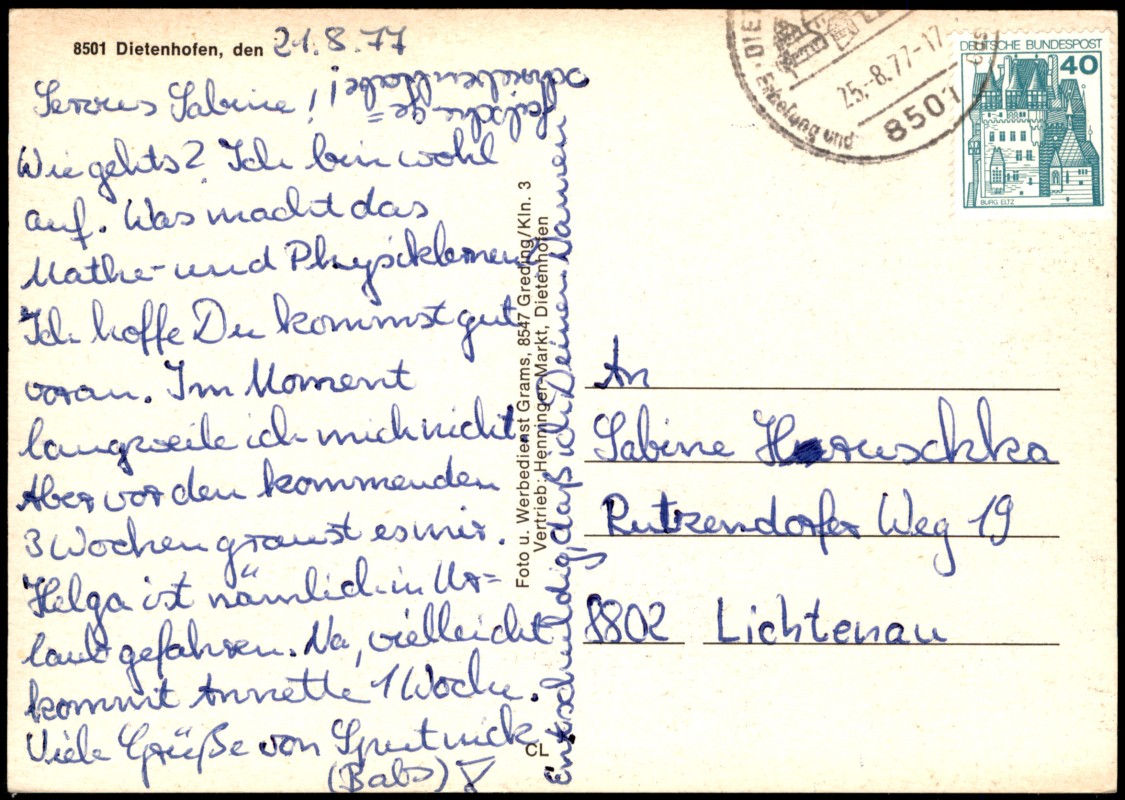 8501 Dietenhofen, den 21.8.77
Servus Sabine!
Wie gehts? Ich bin wohl
auf. Was macht das
Mathe- und Physiklernen?
Ich hoffe Du kommst gut
voran. Im Moment
langweile ich mich nicht.
Aber vor den kommenden
3 Wochen graust es mir.
Helga ist nämlich in Ur=
laub gefahren. Na, vielleicht
kommt Annette 1 Woche.
Viele Grüße von Sputnick
(Babs)
Entschuldig, daß ich Deinen Namen
falsch ge=
schrieben habe!
Foto u. Werbedienst Grams, 8547 Greding/Kln. 3
Vertrieb: Henninger-Markt, Dietenhofen
CL
DIE
25.-8.77-17
Erholung und
8501
DEUTSCHE BUNDESPOST
40
BURG ELTZ
An
Sabine Hruschka
Rutzendorfer Weg 19
8802 Lichtenau